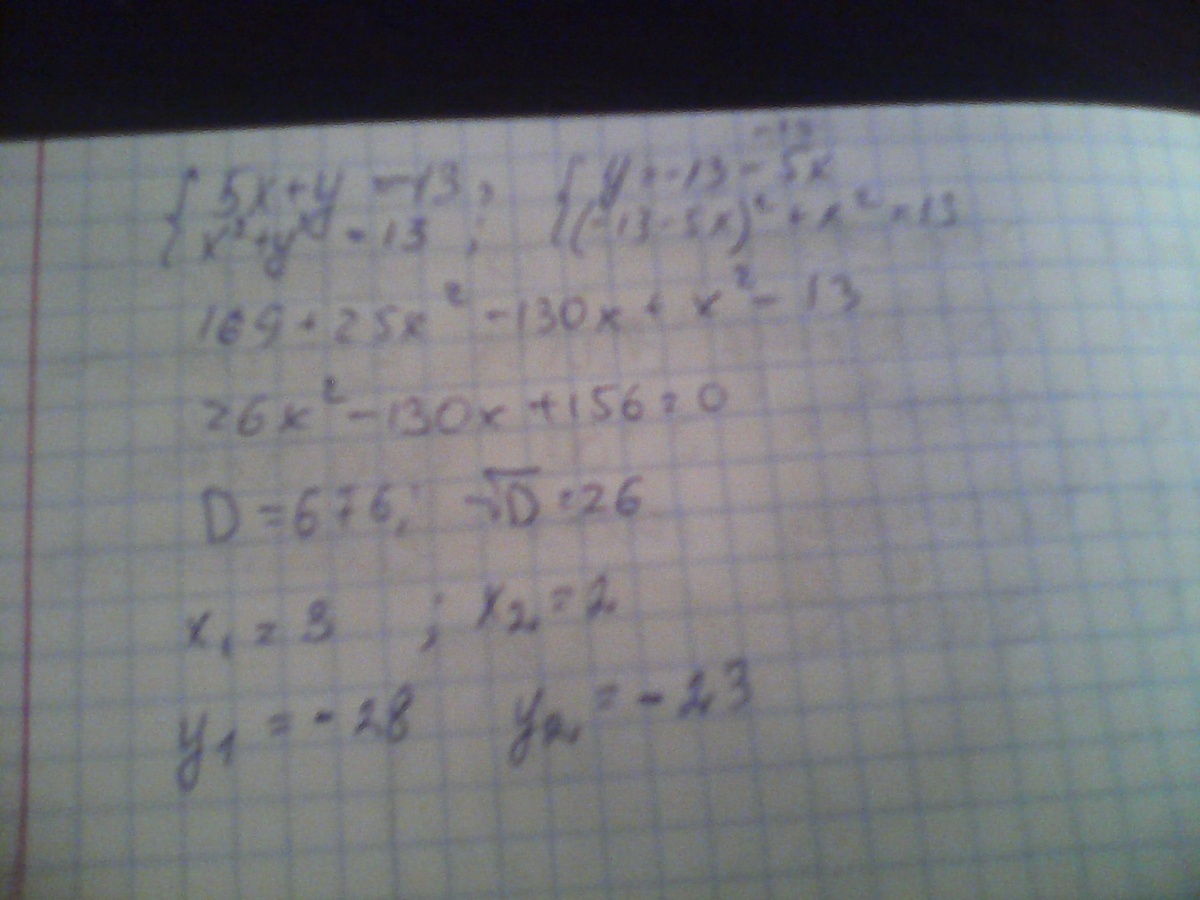 { 5x+y =-13, { y=-13-5x
{ x²+y² =13 ; { (-13-5x)²+x²=13
169+25x²-130x+x²-13
26x²-130x+156=0
D=676; √D=26
x₁=3 ; x₂=2
y₁=-28 y₂=-23